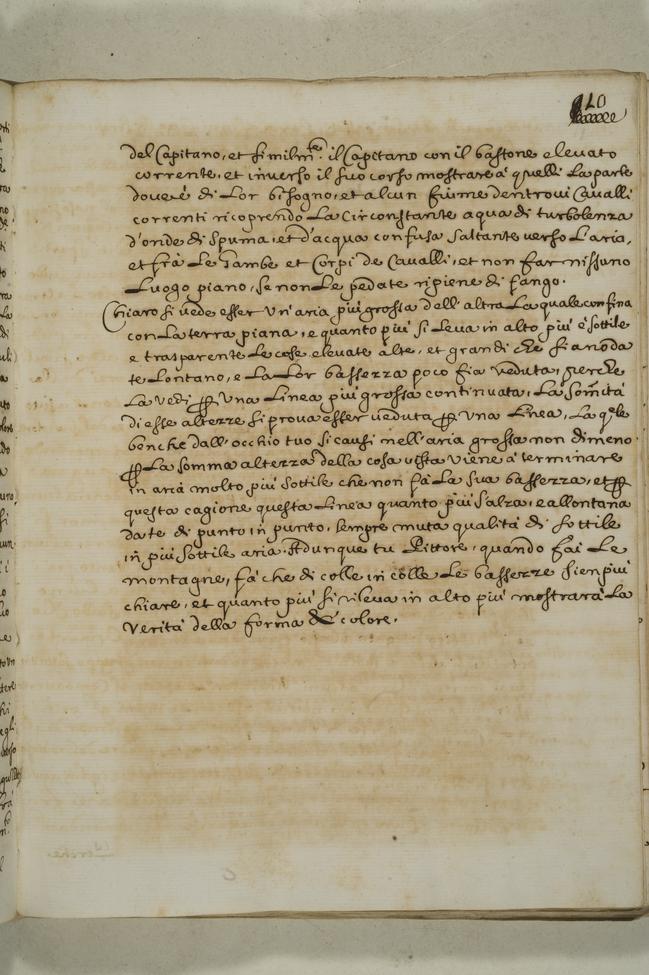 10
del Capitano, et similm.te il Capitano con il bastone elevato
corrente, et inverso il suo corso mostrare à quelli la parte
dovere di lor bisogno, et alcun fiume dentrovi Cavalli
correnti ricoprendo la circonstante aqua di turbolenza
d'onde di spuma, et d'acqua confusa saltante verso l'aria,
et frà le Gambe et Corpi de Cavalli, et non far nissuno
Luogo piano, se non le pedate ripiene di fango.
Chiaro si vede esser un'aria più grossa dell'altra la quale confina
con la terra piana, e quanto più si leva in alto più è sottile
e trasparente le cose elevate alte, et grandi che siano da
te lontano, e la lor bassezza poco fia veduta, perche
la vedi p una linea più grossa continuata, la som̃ità
di esse altezze si prova esser veduta p una linea, la q.le
benche dall'occhio tuo si causi nell'aria grossa non dimeno
p la somma altezza della cosa vista viene à terminare
in aria molto più sottile che non fà la sua bassezza, et p
questa cagione questa linea quanto più s'alza, e allontana
da te di punto in punto, sempre muta qualità di sottile
in più sottile aria. Adunque tu Pittore, quando fai le
montagne, fà che di colle in colle le bassezze sien più
chiare, et quanto più si rileva in alto più mostrarà la
verità della forma & colore.